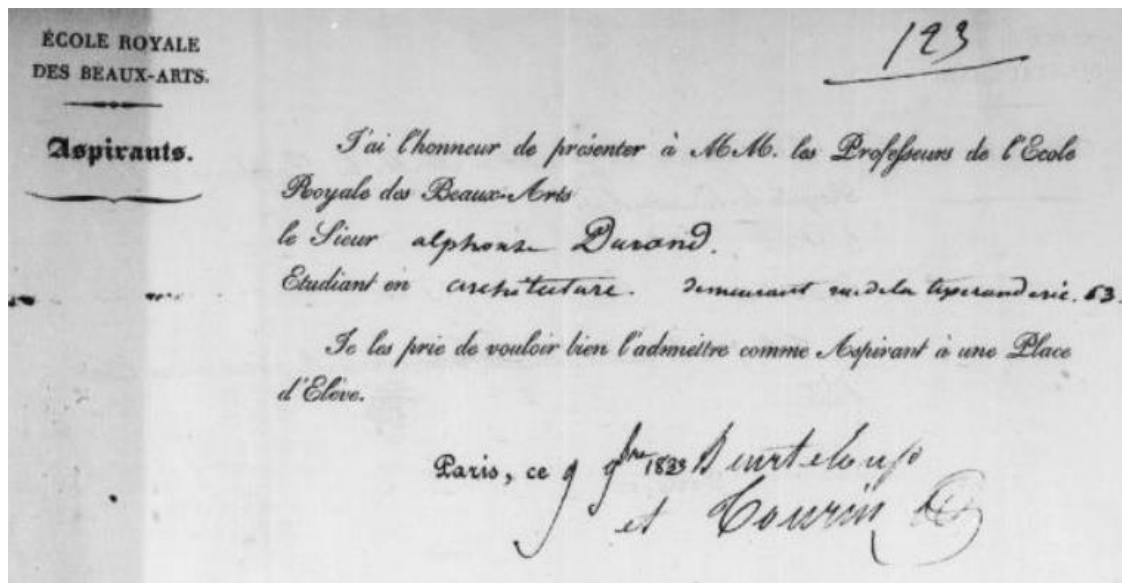 ÉCOLE ROYALE
DES BEAUX-ARTS.
Aspirants.
123
J'ai l'honneur de présenter à MM. les Professeurs de l'Ecole
Royale des Beaux-Arts
le Sieur alphonse Durand.
Etudiant en architecture. demeurant rue de la tixeranderie. 63.
Je les prie de vouloir bien l'admettre comme Aspirant à une Place
d'Elève.
Paris, ce 9 9bre 1833
et